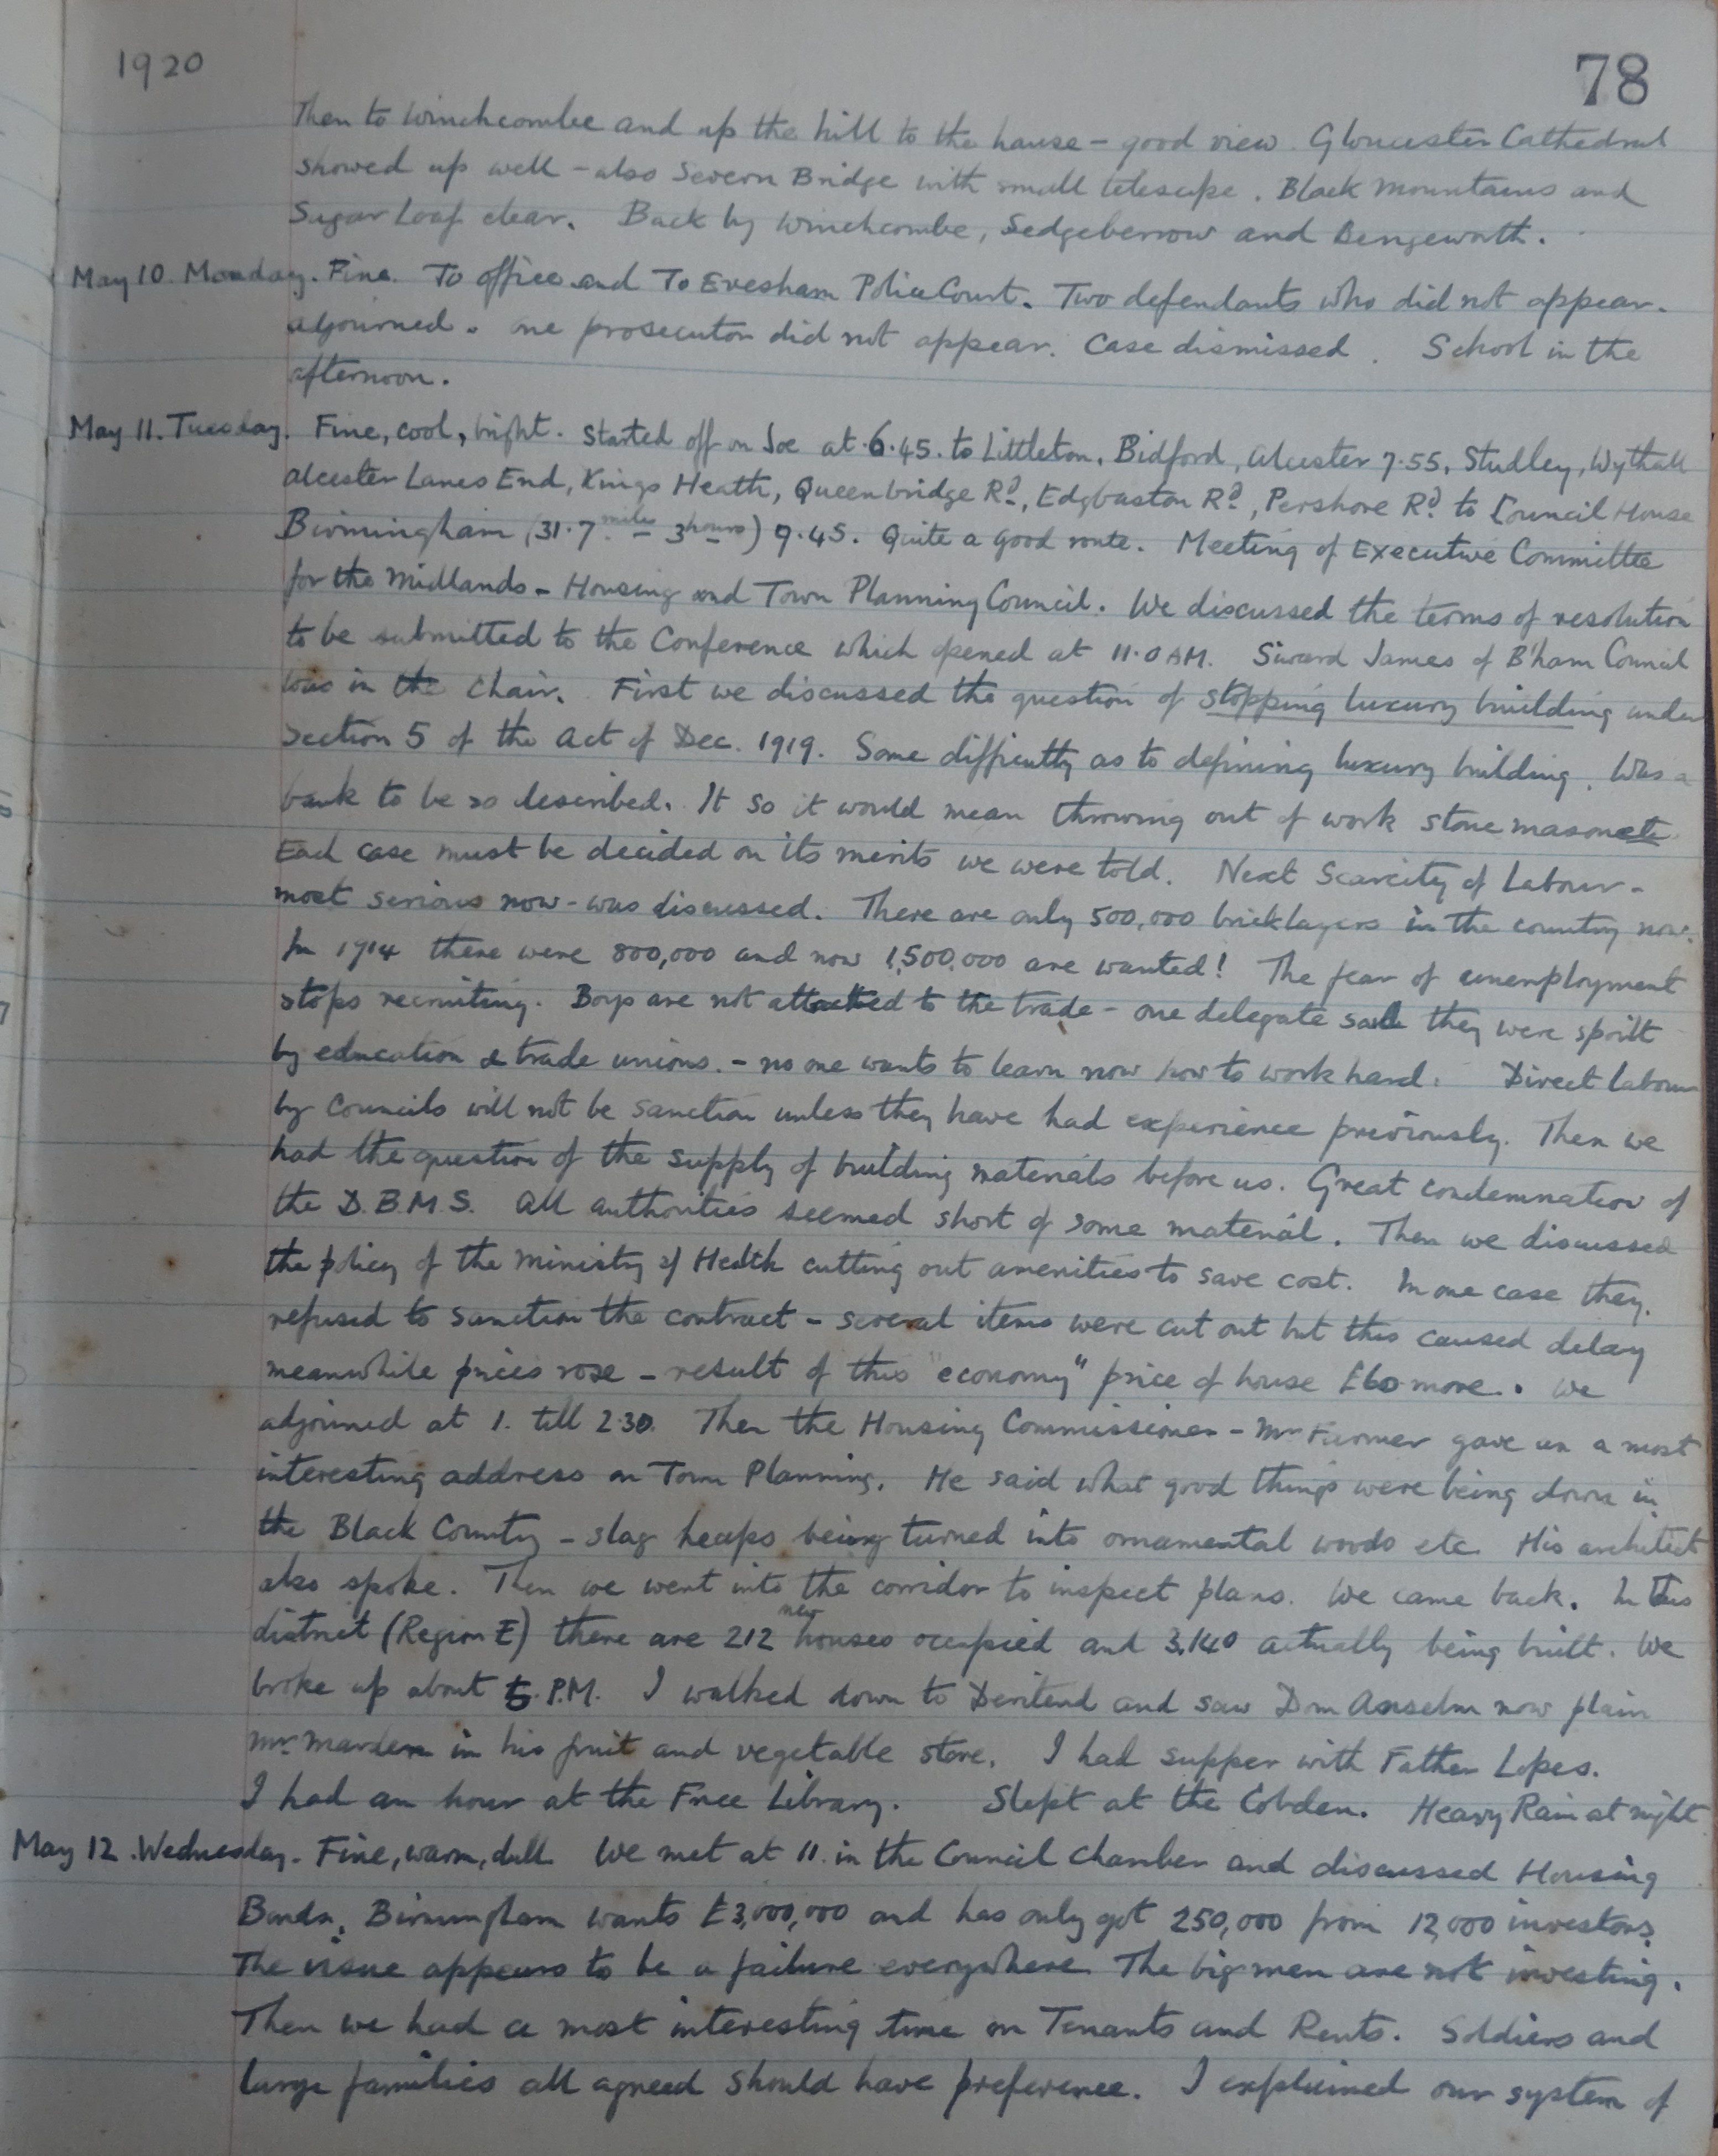 1920
78
Then to Winchcombe and up the hill to the house – good view. Gloucester Cathedral
showed up well – also Severn Bridge with small telescope. Black Mountains and
Sugar Loaf clear. Back by Winchcombe, Sedgeberrow and Bengeworth.
May 10. Monday. Fine. To office and To Evesham Police Court. Two defendants who did not appear.
adjourned. One prosecutor did not appear. Case dismissed. School in the
afternoon.
May 11. Tuesday. Fine, cool, bright. Started off on Joe at 6.45. to Littleton, Bidford, Alcester 7.55, Studley, Wythall
Alcester Lanes End, Kings Heath, Queenbridge Rd, Edgbaston Rd, Pershore Rd to Council House
Birmingham (31.7 miles – 3 hours) 9.45. Quite a good route. Meeting of Executive Committee
for the Midlands – Housing and Town Planning Council. We discussed the terms of resolution
to be submitted to the Conference which opened at 11.0 AM. Siward James of B'ham Council
was in the chair. First we discussed the question of stopping luxury building under
Section 5 of the Act of Dec. 1919. Some difficulty as to defining luxury building. Was a
bank to be so described. If so it would mean throwing out of work stone masons etc
Each case must be decided on its merits we were told. Next Scarcity of Labour –
most serious now – was discussed. There are only 500,000 bricklayers in the country now.
In 1914 there were 800,000 and now 1,500,000 are wanted! The fear of unemployment
stops recruiting. Boys are not attracted to the trade – one delegate said they were spoilt
by education & trade unions. – no one wants to learn now how to work hard. Direct labour
by Councils will not be sanction unless they have had experience previously. Then we
had the question of the supply of building materials before us. Great condemnation of
the D.B.M.S. All authorities seemed short of some material. Then we discussed
the policy of the Ministry of Health cutting out amenities to save cost. In one case they
refused to sanction the contract – several items were cut out but this caused delay
meanwhile prices rose – result of this "economy" price of house £60 more. We
adjourned at 1. till 2.30. Then the Housing Commissioner – Mr Farmer gave us a most
interesting address on Town Planning. He said what good things were being down in
the Black County – slag heaps being turned into ornamental woods etc. His architect
also spoke. Then we went into the corridor to inspect plans. We came back. In this
district (Region E) there are 212 new houses occupied and 3,140 actually being built. We
broke up about 5. P.M. I walked down to Deritend and saw Dom Anselm now plain
Mr. Marden in his fruit and vegetable store. I had supper with Father Lopes.
I had an hour at the Free Library. Slept at the Cobden. Heavy Rain at night
May 12. Wednesday. Fine, warm, dull. We met at 11. in the Council Chamber and discussed Housing
Bonds. Birmingham wants £3,000,000 and has only got 250,000 from 12,000 investors.
The issue appears to be a failure everywhere. The big men are not investing.
Then we had a most interesting time on Tenants and Rents. Soldiers and
large families all agreed should have preference. I explained our system of